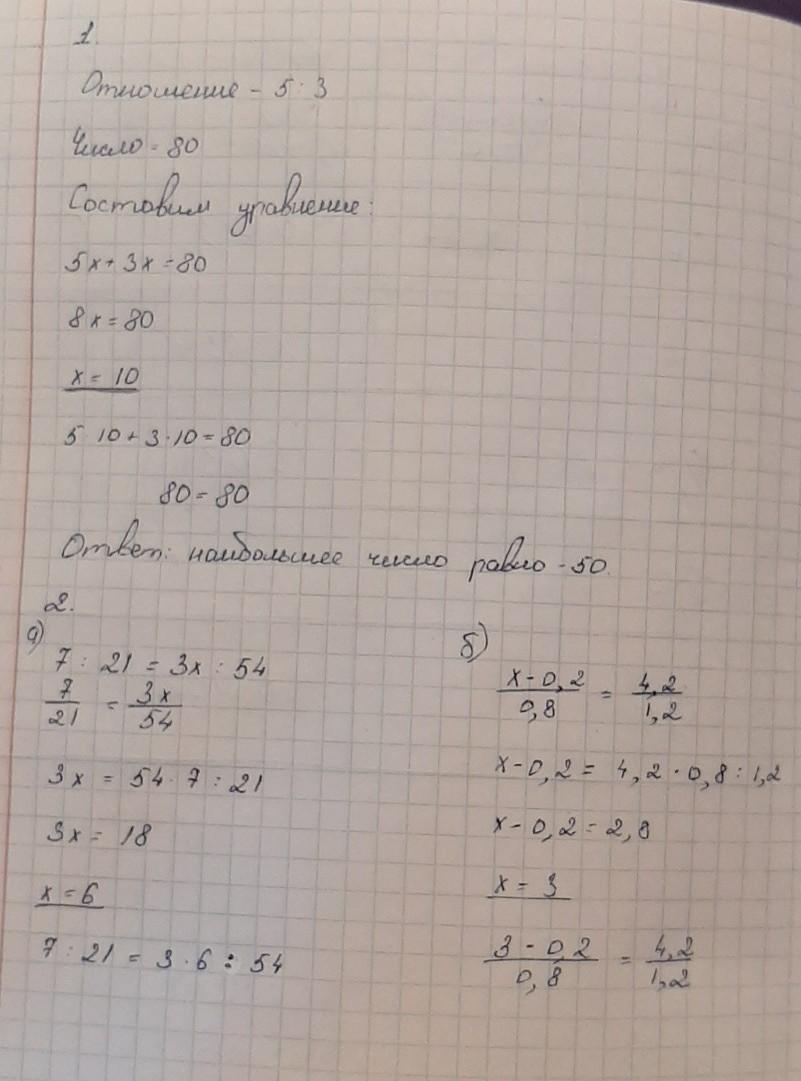 1.
Отношение - 5 : 3
Число - 80
Составим уравнение:
5x + 3x = 80
8x = 80
x = 10
5 10 + 3 · 10 = 80
80 = 80
Ответ: наибольшее число равно - 50.
2.
а)
7 : 21 = 3x : 54
7/21 = 3x/54
3x = 54 · 7 : 21
3x = 18
x = 6
7 : 21 = 3 · 6 : 54
б)
x - 0,2/0,8 = 4,2/1,2
x - 0,2 = 4,2 · 0,8 : 1,2
x - 0,2 = 2,8
x = 3
3 - 0,2/0,8 = 4,2/1,2